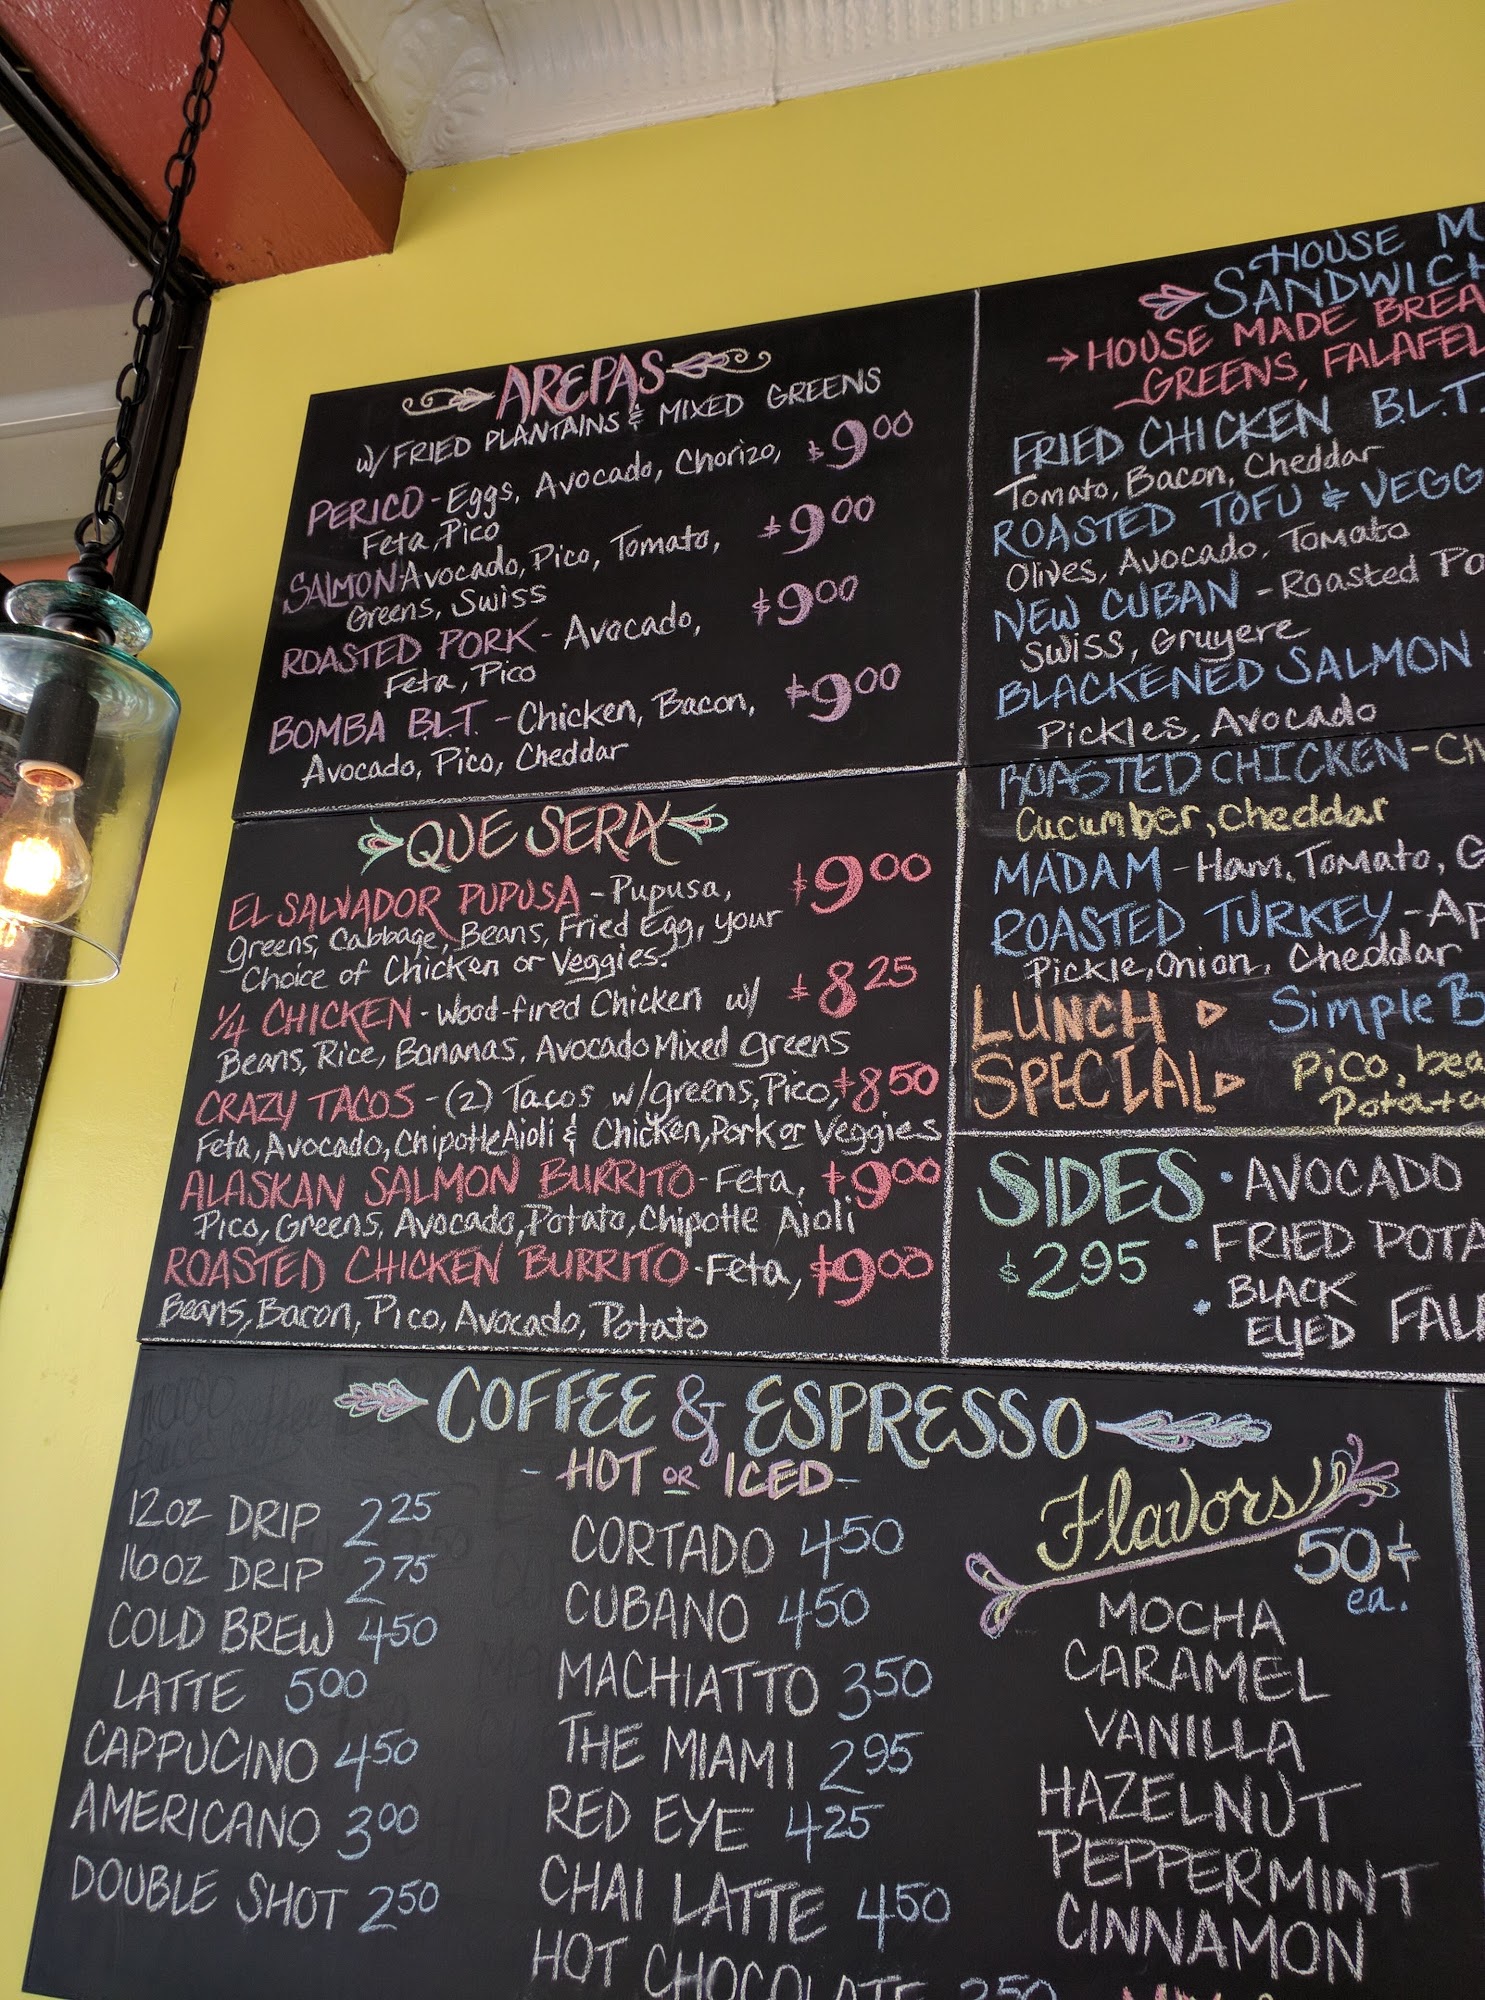 AREPAS
w/ FRIED PLANTAINS & MIXED GREENS
PERICO - Eggs, Avocado, Chorizo, $9.00
Feta, Pico
SALMON - Avocado, Pico, Tomato, $9.00
Greens, Swiss
ROASTED PORK - Avocado, $9.00
Feta, Pico
BOMBA B.L.T. - Chicken, Bacon, $9.00
Avocado, Pico, Cheddar
QUE SERA
EL SALVADOR PUPUSA - Pupusa, $9.00
Greens, Cabbage, Beans, Fried Egg, your
Choice of Chicken or Veggies.
1/4 CHICKEN - Wood-fired Chicken w/ $8.25
Beans, Rice, Bananas, Avocado Mixed greens
CRAZY TACOS - (2) Tacos w/greens, Pico, $8.50
Feta, Avocado, Chipotle Aioli & Chicken, Pork or Veggies
ALASKAN SALMON BURRITO - Feta, $9.00
Pico, Greens, Avocado, Potato, Chipotle Aioli
ROASTED CHICKEN BURRITO - Feta, $9.00
Beans, Bacon, Pico, Avocado, Potato
HOUSE
SANDWICH
→ HOUSE MADE
GREENS, FALAFEL
FRIED CHICKEN B.L.T.
Tomato, Bacon, Cheddar
ROASTED TOFU &
Olives, Avocado, Tomato
NEW CUBAN - Roasted
Swiss, Gruyere
BLACKENED SALMON
Pickles, Avocado
ROASTED CHICKEN -
Cucumber, Cheddar
MADAM - Ham, Tomato,
ROASTED TURKEY -
Pickle, Onion, Cheddar
LUNCH SPECIAL
Simple
Pico,
SIDES
$2.95
• AVOCADO
• FRIED
• BLACK EYED
COFFEE & ESPRESSO
- HOT OR ICED -
12oz DRIP 2.25
16oz DRIP 2.75
COLD BREW 4.50
LATTE 5.00
CAPPUCINO 4.50
AMERICANO 3.00
DOUBLE SHOT 2.50
CORTADO 4.50
CUBANO 4.50
MACHIATTO 3.50
THE MIAMI 2.95
RED EYE 4.25
CHAI LATTE 4.50
HOT CHOCOLATE
Flavors
50¢ ea.
MOCHA
CARAMEL
VANILLA
HAZELNUT
PEPPERMINT
CINNAMON